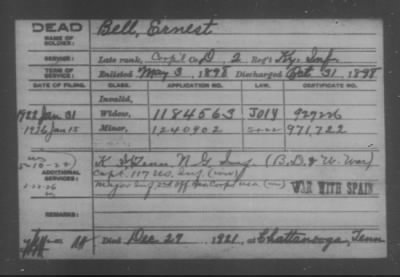 DEAD
NAME OF SOLDIER:
Bell, Ernest
SERVICE:
Late rank, Corp'l Co D, 2 Reg't Ky. Inf.
TERM OF SERVICE:
Enlisted May 3, 1898 Discharged Oct 31, 1898
DATE OF FILING. CLASS. APPLICATION NO. LAW. CERTIFICATE NO.
Invalid,
1922 Jan 31 Widow, 1184563 927226
1926 Jan 15 Minor, 1240902 971,722
ADDITIONAL SERVICES:
K Tenn. N G Inf. (B.D. & W. War)
Capt. 117 US. Inf. (WW)
WAR WITH SPAIN
REMARKS:
Died Dec 29, 1921, at Chattanooga, Tenn